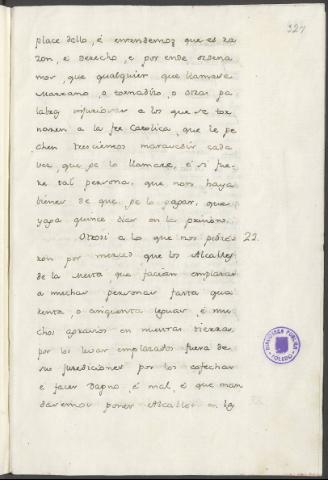 327
place dello, é entendemos que es ra
zon, e derecho, e por ende ordena
mos, que qualquier que llamare
Marrano, o tornadizo, o otras pa
labras injuriosas a los que se tor
naren a la fee Catolica, que le pe
chen trescientos maravedis cada
vez que se lo llamare, é si fue
re tal persona, que non haya
bienes de que se lo pagar, que
yaga quince dias en la prision.
Otrosi a lo que nos pidie 22.
ron por merced que los Alcalles
de la Mesta, que facian emplazar
a muchas personas fasta qua
renta, o cinquenta leguas, é mu
chos agravios en nuestras tierras
por los levar emplazados fuera de
sus juredictiones por los cofechar
e facer dagno, é mal, é que man
daremos poner Alcalles en los
BIBLIOTECA PUBLICA
TOLEDO